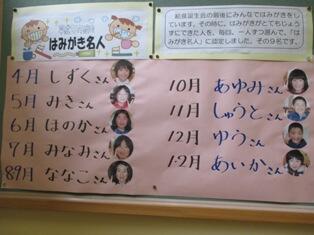 はみがき名人
給食誕生会の最後にみんなではみがきをし
ています。その時に、はみがきがとてもじょう
ずにできた人を、毎回、一人ずつ選んで、「は
みがき名人」に認定しました。その9名です。
4月 しずくさん
5月 みきさん
6月 ほのかさん
7月 みなみさん
8.9月 ななこさん
10月 あゆみさん
11月 しゅうとさん
12月 ゆうさん
1.2月 あいかさん